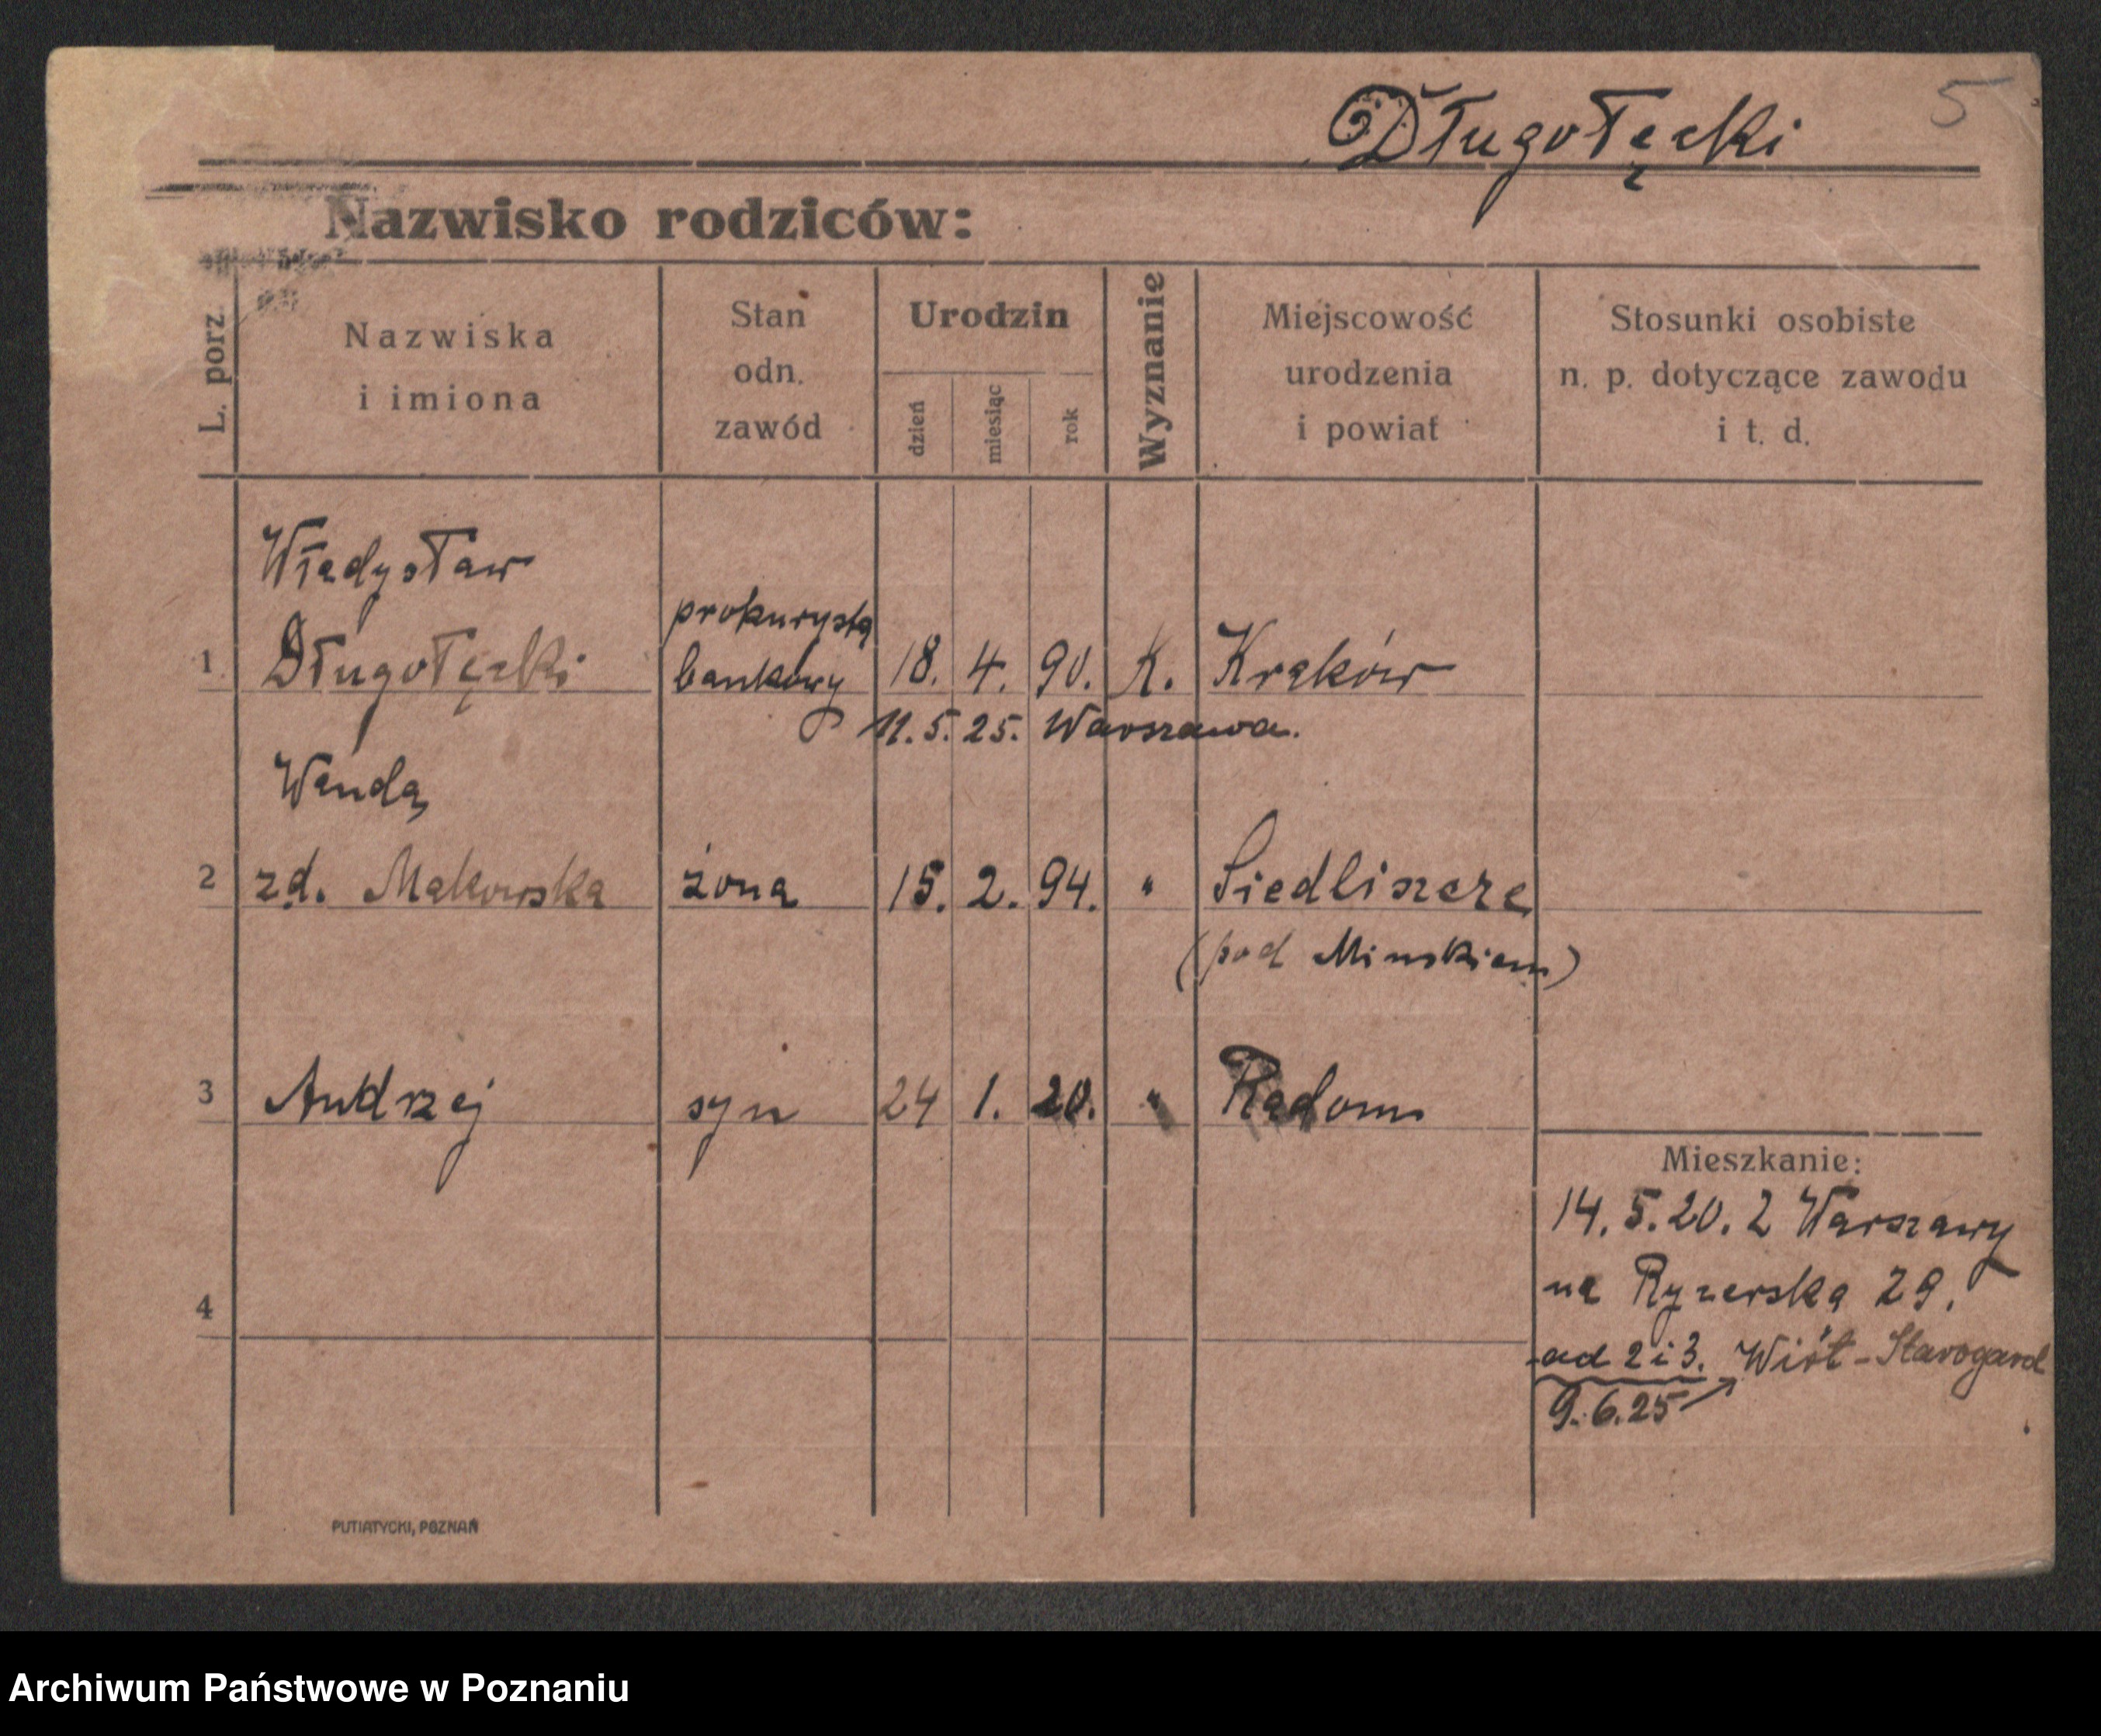 Długołęcki 5
Nazwisko rodziców:
L. porz.
Nazwiska
i imiona
Stan
odn.
zawód
Urodzin
dzień
miesiąc
rok
Wyznanie
Miejscowość
urodzenia
i powiat
Stosunki osobiste
n. p. dotyczące zawodu
i t. d.
Władysław
prokurysta
1 Długołęcki bankowy 18. 4. 90. K. Kraków
11. 5. 25. Warszawa.
Wanda,
2 zd. Makowska żona 15. 2. 94. " Siedliszcze
(pod Minskiem)
3 Andrzej syn 24 1. 20. " Radom
Mieszkanie:
14. 5. 20. Z Warszawy
na Rycerska 29.
4
ad 2 i 3. Wirt - Starogard
9. 6. 25
PUTIATYCKI, POZNAŃ
Archiwum Państwowe w Poznaniu